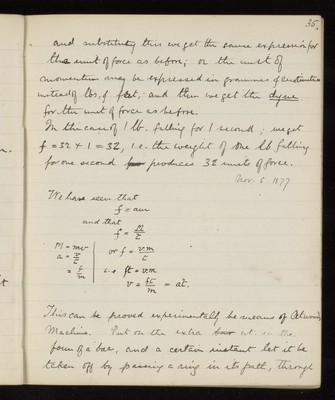 35.
and substituting this we get the same expression for
the unit of force as before; or the unit of
momentum may be expressed in grammes & centimetres
instead of lbs. & feet; and then we get the dyne
for the unit of force as before.
In this case of 1 lb. falling for 1 second, we get
f = 32 × 1 = 32, i.e. the weight of one lb falling
for one second produces 32 units of force.
Nov. 6. 1877
We have seen that
f = am
and that
f = M/t
M = mv
a = v/t
= f/m
or f = vm/t
i.e. ft = vm
v = ft/m = at.
This can be proved experimentally by means of Atwood's
Machine. Put on the extra wt. in the
form of a bar, and a certain instant let it be
taken off by passing a ring in its path, through